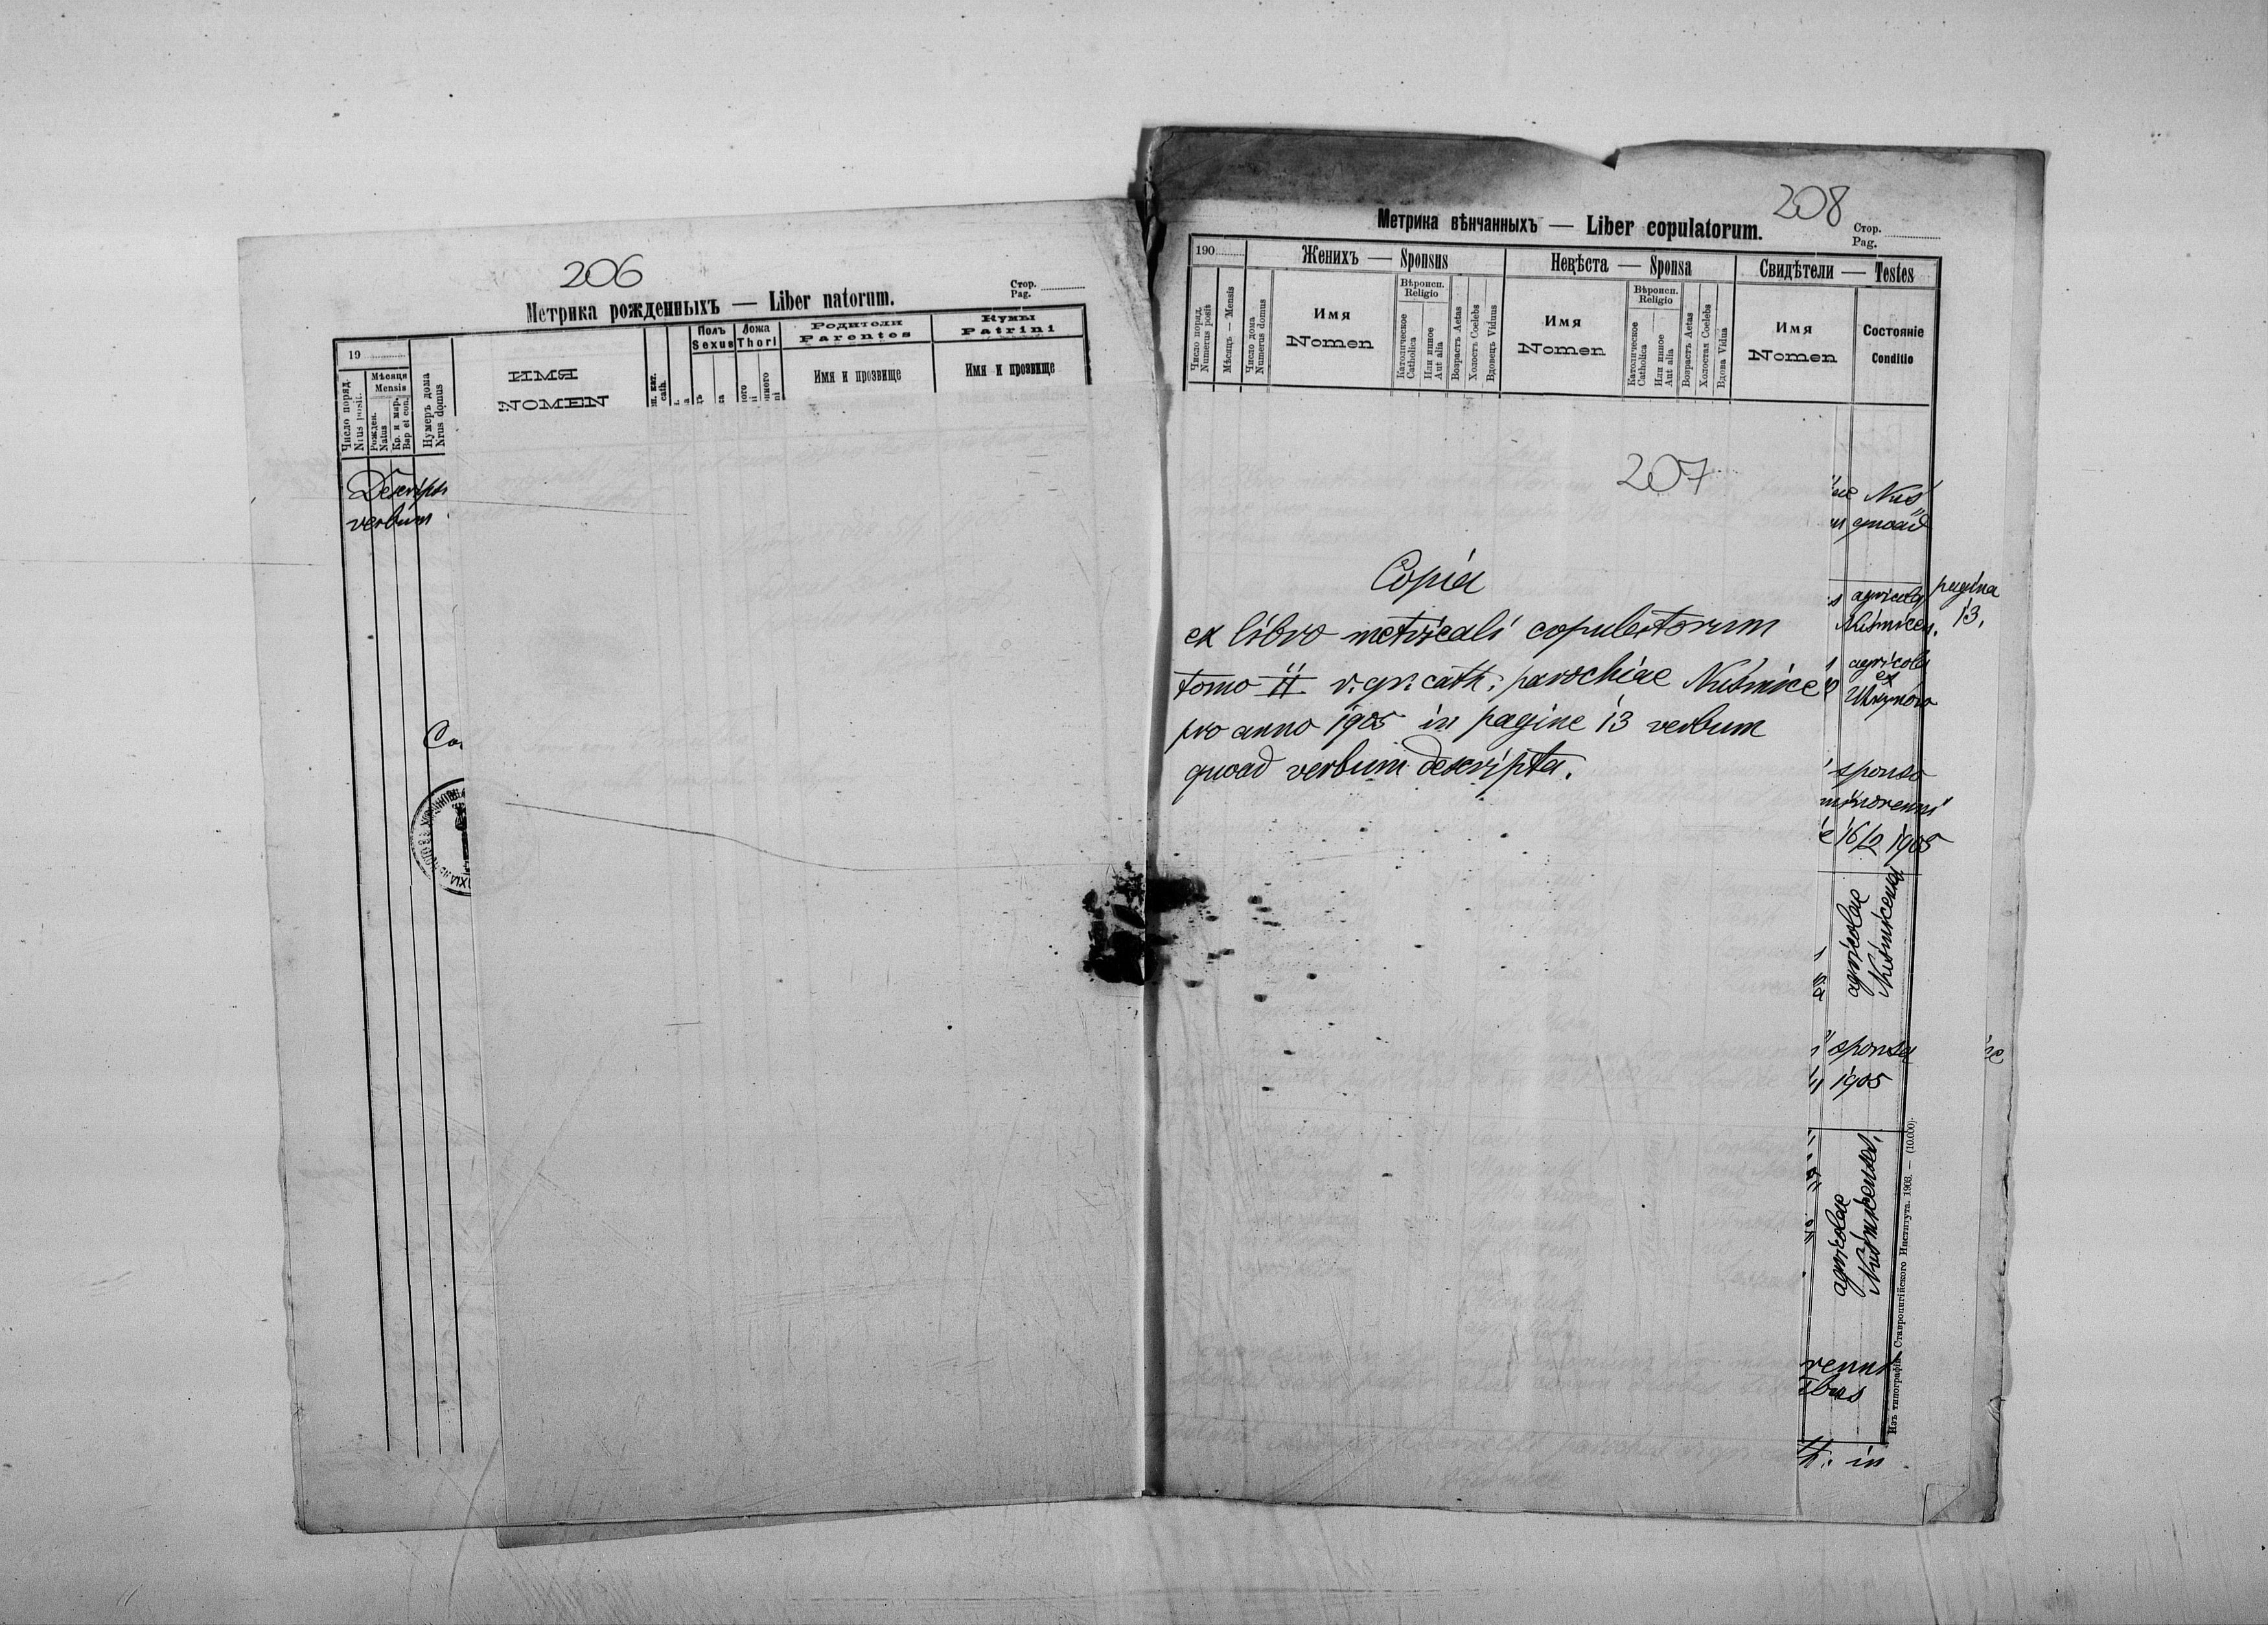 206
Метрика рожденныхъ — Liber natorum.
Стор.
Pag.
19
Число поряд.
Nrus posit.
Мѣсяця
Mensis
Рожден.
Natus
Кр. и мир.
Bap et con.
Нумеръ дома
Nrus domus
ИМЯ
NOMEN
cath.
Полъ
Sexus
Ложа
Thori
Родители
Parentes
Имя и прозвище
Кумы
Patrini
Имя и прозвище
Descript
verbum
Co
208
Метрика вѣнчанныхъ — Liber copulatorum.
Стор.
Pag.
190
Число поряд.
Numerus posit
Мѣсяцъ — Mensis
Число дома
Numerus domus
Женихъ — Sponsus
Имя
Nomen
Вѣроисп.
Religio
Католическое
Catholica
Или инное
Aut alia
Возрастъ Aetas
Холостъ Coelebs
Вдовецъ Viduus
Невѣста — Sponsa
Имя
Nomen
Вѣроисп.
Religio
Католическое
Catholica
Или инное
Aut alia
Возрастъ Aetas
Холостая Coelebs
Вдова Vidua
Свидѣтели — Testes
Имя
Nomen
Состояніе
Conditio
207
Copia
ex libro metricali copulatorum
tomo II r. gr. cath. parochiae Nusmice
pro anno 1905 in pagine 13 verbum
quoad verbum descripta.
quoad
agricola
pagina
13.
agricola
ex
Uhrynów
sponso
minorenni
16/2 1905
agricolae
Nusmicenses
sponsa
1905
agricolae
Nusmicenses.
Изъ типографіи Ставропигійского Института. 1903. — (10.000).
in